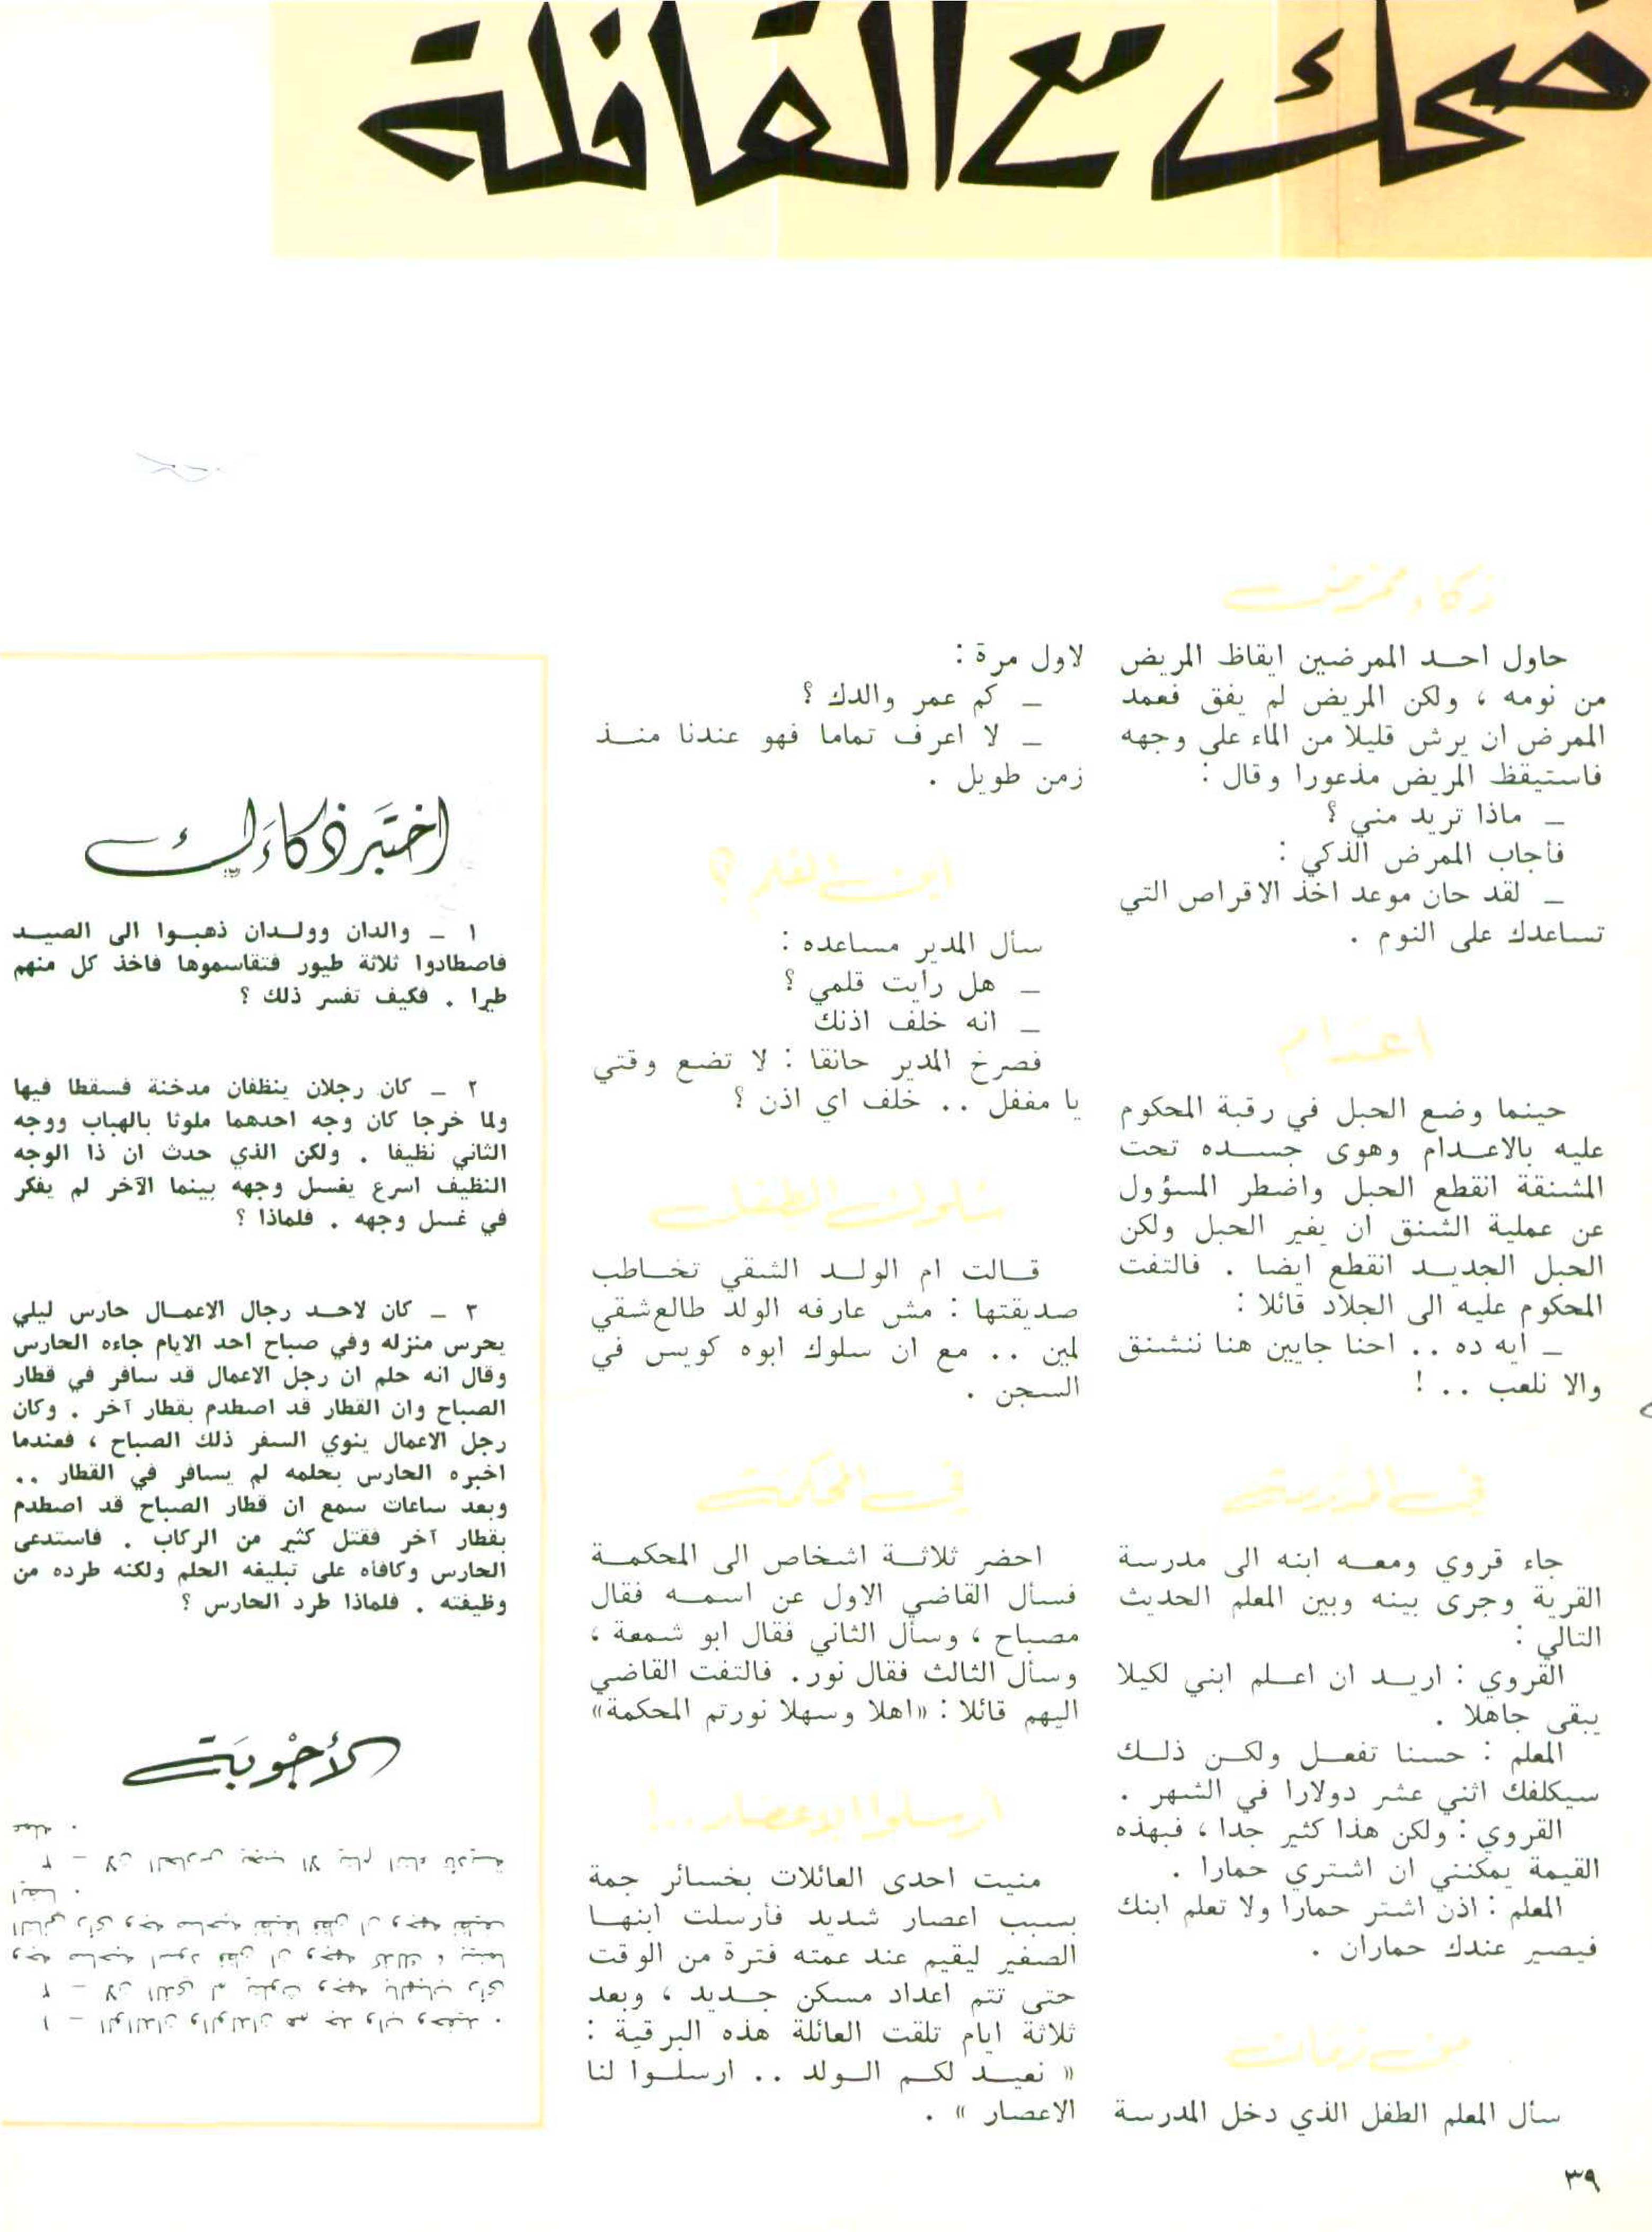 ضحك مع القافلة
ذكاء ممرض
حاول احد الممرضين ايقاظ المريض
من نومه ، ولكن المريض لم يفق فعمد
الممرض ان يرش قليلا من الماء على وجهه
فاستيقظ المريض مذعورا وقال :
_ ماذا تريد مني ؟
فأجاب الممرض الذكي :
_ لقد حان موعد اخذ الاقراص التي
تساعدك على النوم .
اعدام
حينما وضع الحبل في رقبة المحكوم
عليه بالاعدام وهوى جسده تحت
المشنقة انقطع الحبل واضطر المسؤول
عن عملية الشنق ان يغير الحبل ولكن
الحبل الجديد انقطع ايضا . فالتفت
المحكوم عليه الى الجلاد قائلا :
_ ايه ده .. احنا جايين هنا ننشنق
والا نلعب .. !
في المدرسة
جاء قروي ومعه ابنه الى مدرسة
القرية وجرى بينه وبين المعلم الحديث
التالي :
القروي : اريد ان اعلم ابني لكيلا
يبقى جاهلا .
المعلم : حسنا تفعل ولكن ذلك
سيكلفك اثني عشر دولارا في الشهر .
القروي : ولكن هذا كثير جدا ، فبهذه
القيمة يمكنني ان اشتري حمارا .
المعلم : اذن اشتر حمارا ولا تعلم ابنك
فيصير عندك حماران .
من زمان
سأل المعلم الطفل الذي دخل المدرسة
لاول مرة :
_ كم عمر والدك ؟
_ لا اعرف تماما فهو عندنا منذ
زمن طويل .
اين القلم ؟
سأل المدير مساعده :
_ هل رأيت قلمي ؟
_ انه خلف اذنك
فصرخ المدير حانقا : لا تضع وقتي
يا مغفل .. خلف اي اذن ؟
سلوك الطفل
قالت ام الولد الشقي تخاطب
صديقتها : مش عارفه الولد طالع شقي
لمين .. مع ان سلوك ابوه كويس في
السجن .
في المحكمة
احضر ثلاثة اشخاص الى المحكمة
فسأل القاضي الاول عن اسمه فقال
مصباح ، وسأل الثاني فقال ابو شمعة ،
وسأل الثالث فقال نور . فالتفت القاضي
اليهم قائلا : «اهلا وسهلا نورتم المحكمة»
ارسلوا الاعصار ..!
منيت احدى العائلات بخسائر جمة
بسبب اعصار شديد فأرسلت ابنها
الصغير ليقيم عند عمته فترة من الوقت
حتى تتم اعداد مسكن جديد ، وبعد
ثلاثة ايام تلقت العائلة هذه البرقية :
« نعيد لكم الولد .. ارسلوا لنا
الاعصار » .
اختبر ذكاءك
١ _ والدان وولدان ذهبوا الى الصيد
فاصطادوا ثلاثة طيور فتقاسموها فاخذ كل منهم
طيرا . فكيف تفسر ذلك ؟
٢ _ كان رجلان ينظفان مدخنة فسقطا فيها
ولما خرجا كان وجه احدهما ملوثا بالهباب ووجه
الثاني نظيفا . ولكن الذي حدث ان ذا الوجه
النظيف اسرع يغسل وجهه بينما الآخر لم يفكر
في غسل وجهه . فلماذا ؟
٣ _ كان لاحد رجال الاعمال حارس ليلي
يحرس منزله وفي صباح احد الايام جاءه الحارس
وقال انه حلم ان رجل الاعمال قد سافر في قطار
الصباح وان القطار قد اصطدم بقطار آخر . وكان
رجل الاعمال ينوي السفر ذلك الصباح ، فعندما
اخبره الحارس بحلمه لم يسافر في القطار ..
وبعد ساعات سمع ان قطار الصباح قد اصطدم
بقطار آخر فقتل كثير من الركاب . فاستدعى
الحارس وكافأه على تبليغه الحلم ولكنه طرده من
وظيفته . فلماذا طرد الحارس ؟
الأجوبة
١ _ الوالدان والولدان هم جد واب وحفيد .
٢ _ لان الذي لم يتلوث وجهه بالهباب رأى
وجه صاحبه اسود فظن ان وجهه كذلك ، بينما
الثاني رأى وجه صاحبه نظيفا فظن ان وجهه نظيف
ايضا .
٣ _ لان الحارس يجب الا ينام اثناء تأدية
عمله .
٣٩